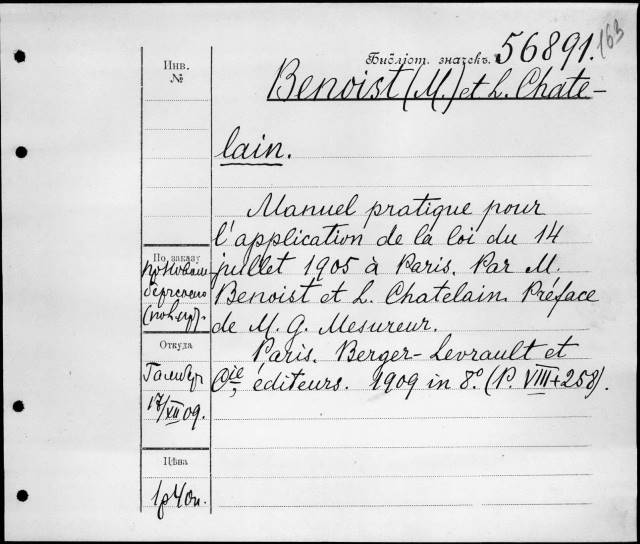 163
Библіот. значекъ. 56891.
Инв.
№
Benoist (M.) et L. Chate-
lain.
Manuel pratique pour
l'application de la loi du 14
juillet 1905 à Paris. Par M.
Benoist et L. Chatelain. Préface
de M. G. Mesureur.
Paris. Berger-Levrault et
Cie, éditeurs. 1909 in 8º. (P. VIII+258).
По заказу
Откуда
17/XII 09.
Цѣна
1р 40к.